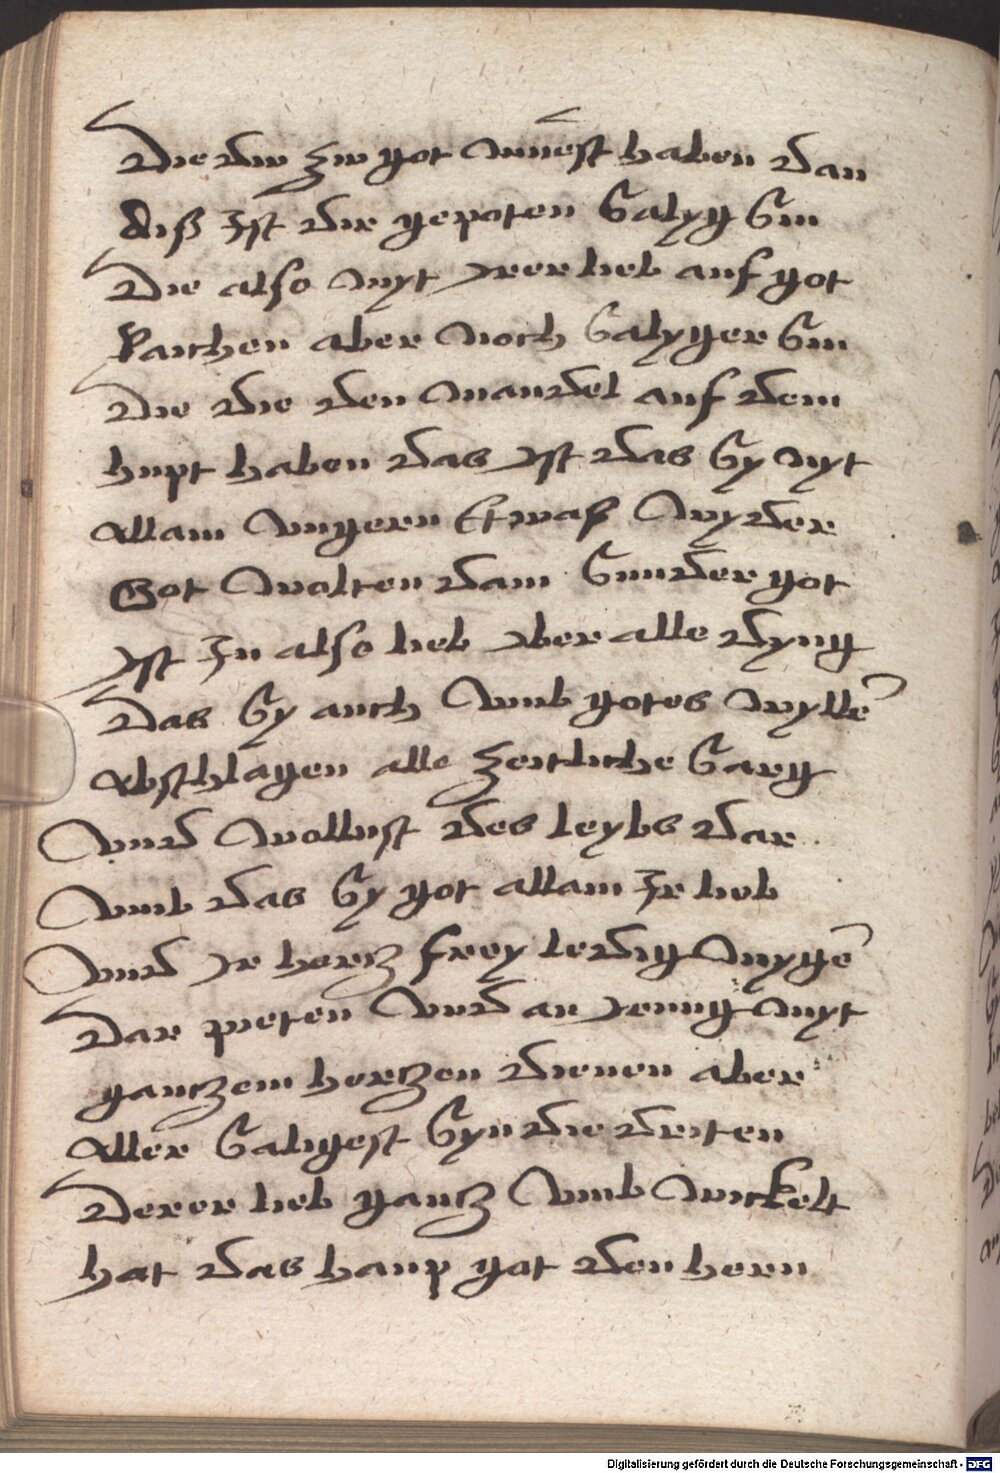 Die dw zw got müest haben dan
diß Ist die gepoten Salyg Sin
Die also myt yrer lieb auf got
Raichen aber noch Salyger Sin
Die die den mandel auf dem
hupt haben das yst das Sy nyt
allain ungern Etwas wyder
Got wolten dain Sunder got
yst In also lieb yber alle dyng
Das Sy auch vmb gotes wylle͂
abschlagen alle zeitliche Sarg
vnd wollust des leybs dar
vmb das Sy got allain Ir lieb
vnd yr hercz frey ledig myge͂
Dar pieten vnd an yenig myt
ganczem herczen dienen aber
aller Saligest Syn die driten
Derer lieb gantz vmb wickelt
hat das haup got den hern
Digitalisierung gefördert durch die Deutsche Forschungsgemeinschaft - DFG